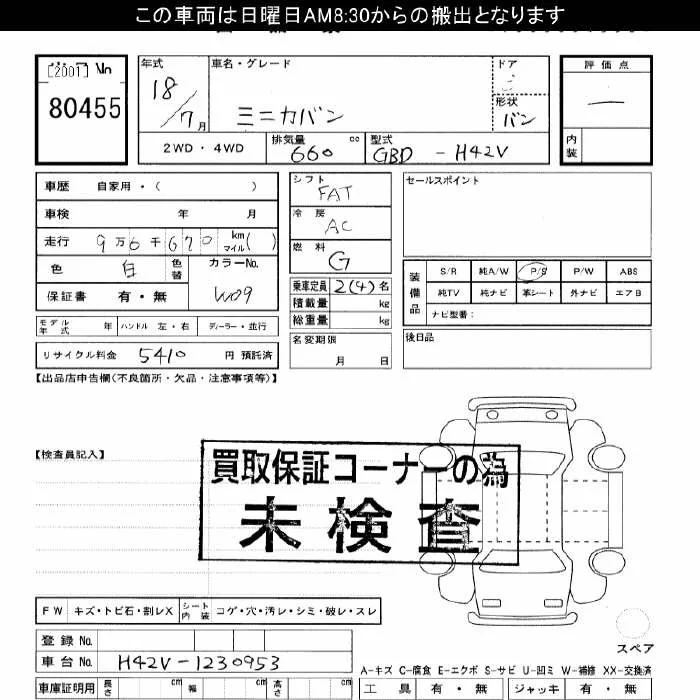 この車両は日曜日AM8:30からの搬出となります
[2001] No
80455
年式
18/7月
車名・グレード
ミニカバン
ドア
形状
バン
評価点
—
内装
2WD・4WD
排気量
660 cc
型式
GBD - H42V
車歴 自家用・( )
車検 年 月
走行 9万6千670 km マイル( )
色 白 色替
カラーNo.
W09
保証書 有・無
シフト
FAT
冷房
AC
燃料
G
乗車定員 2(4)名
積載量 kg
総重量 kg
セールスポイント
装備品
S/R 純A/W P/S P/W ABS
純TV 純ナビ 革シート 外ナビ エアB
ナビ型番:
モデル年式 年 ハンドル 左・右 ディーラー・並行
リサイクル料金 5410 円 預託済
名変期限
月 日
後日品
【出品店申告欄(不良箇所・欠品・注意事項等)】
【検査員記入】
買取保証コーナーの為
未検査
FW キズ・トビ石・割レX シート内装 コゲ・穴・汚レ・シミ・破レ・スレ
登録No.
車台No. H42V-1230953
スペア
A-キズ C-腐食 E-エクボ S-サビ U-凹ミ W-補修 XX-交換済
車庫証明用 長さ cm 幅 cm 高さ cm
工具 有・無 ジャッキ 有・無